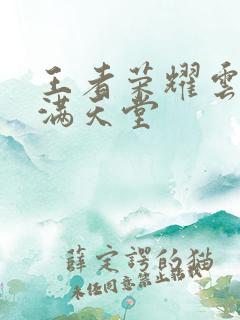 王者荣耀雲
满天堂
薛定谔的猫
未经同意禁止转载